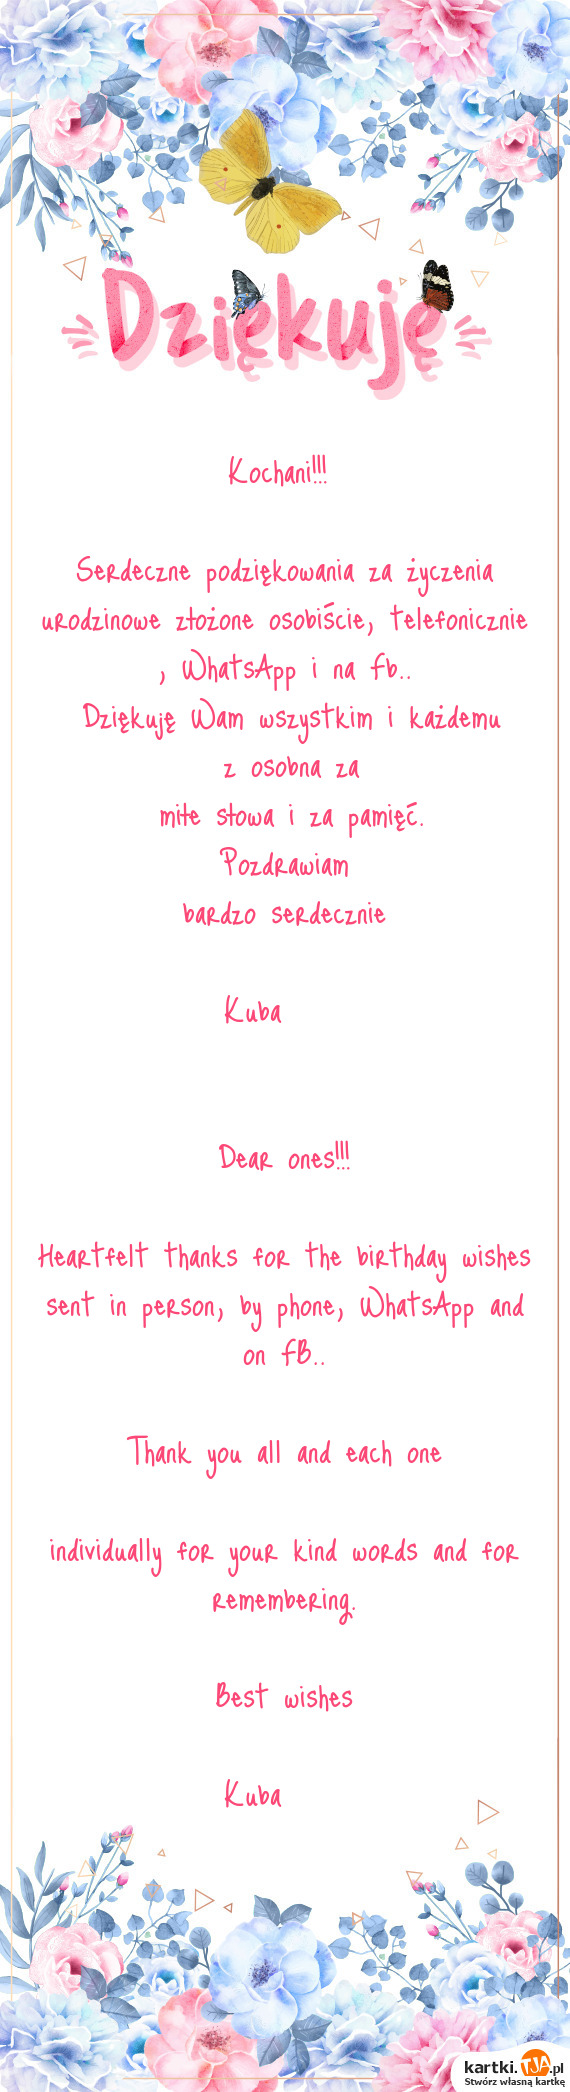 Dziękuję
Kochani!!!
Serdeczne podziękowania za życzenia
urodzinowe złożone osobiście, telefonicznie
, WhatsApp i na fb..
Dziękuję Wam wszystkim i każdemu
z osobna za
miłe słowa i za pamięć.
Pozdrawiam
bardzo serdecznie
Kuba
Dear ones!!!
Heartfelt thanks for the birthday wishes
sent in person, by phone, WhatsApp and
on FB..
Thank you all and each one
individually for your kind words and for
remembering.
Best wishes
Kuba
kartki.TJA.pl
Stwórz własną kartkę